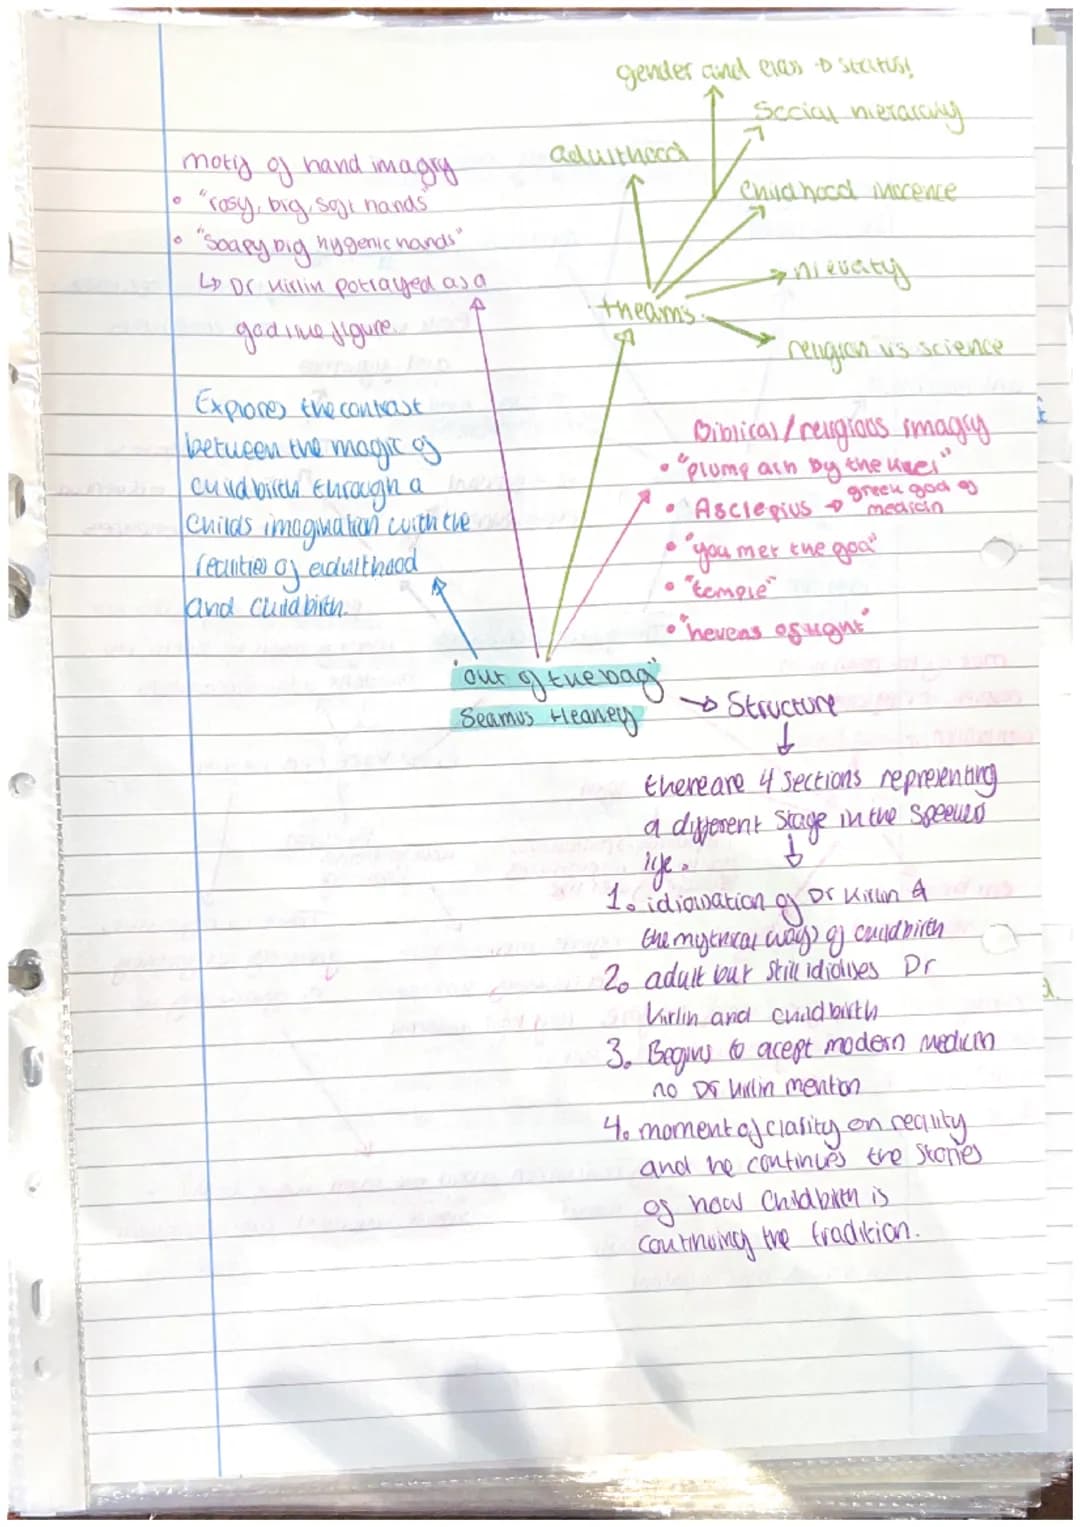 gender and class → status!
Social hierarchy
adulthood
Childhood inocence
nievity
theams
religion vs science
motif of hand imagry
• "rosy, big, soft hands"
• "Soapy big hygenic hands"
↳ Dr Kirlin potrayed as a
god like figure.
Explores the contrast
between the magic of
childbirth through a
childs imagination with the
realities of adulthood
and childbirth.
Biblical/religious imagry
• "plump ark by the keel"
• Asclepius → greek god of
medicin
• "you met the god"
• "temple"
• "hevens of light"
"out of the bag"
Seamus Heaney
→ Structure
there are 4 sections representing
a different stage in the
life.
1. of Dr Kirlin &
the mythical ways of childbirth
2. adult but still idiolises Dr
Kirlin and childbirth
3. Begins to acept modern medicin
no Dr Kirlin mention
4. moment of clarity on reality
and he continues the stories
of how Childbirth is
continuing the tradition.